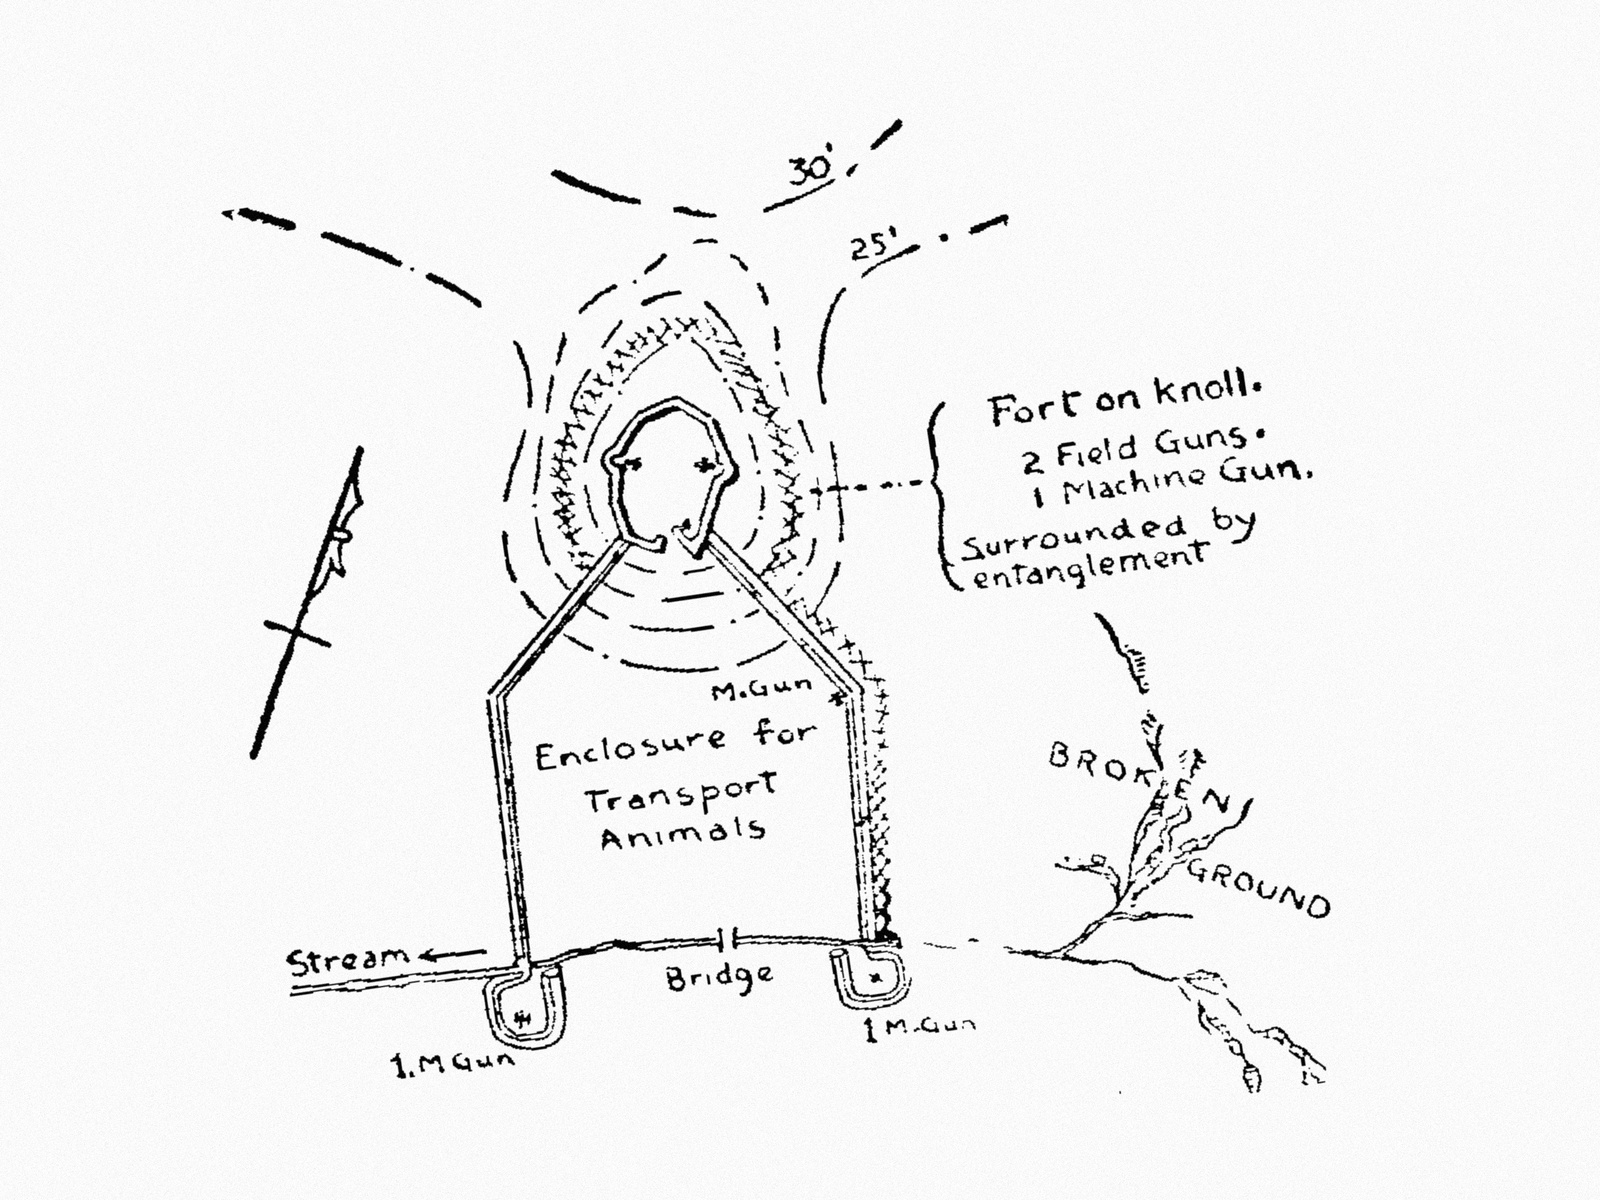 30'
25'
Fort on knoll.
2 Field Guns.
1 Machine Gun.
Surrounded by
entanglement
M.Gun
Enclosure for
Transport
Animals
BROKEN
GROUND
Stream
Bridge
1 M.Gun
1.M Gun